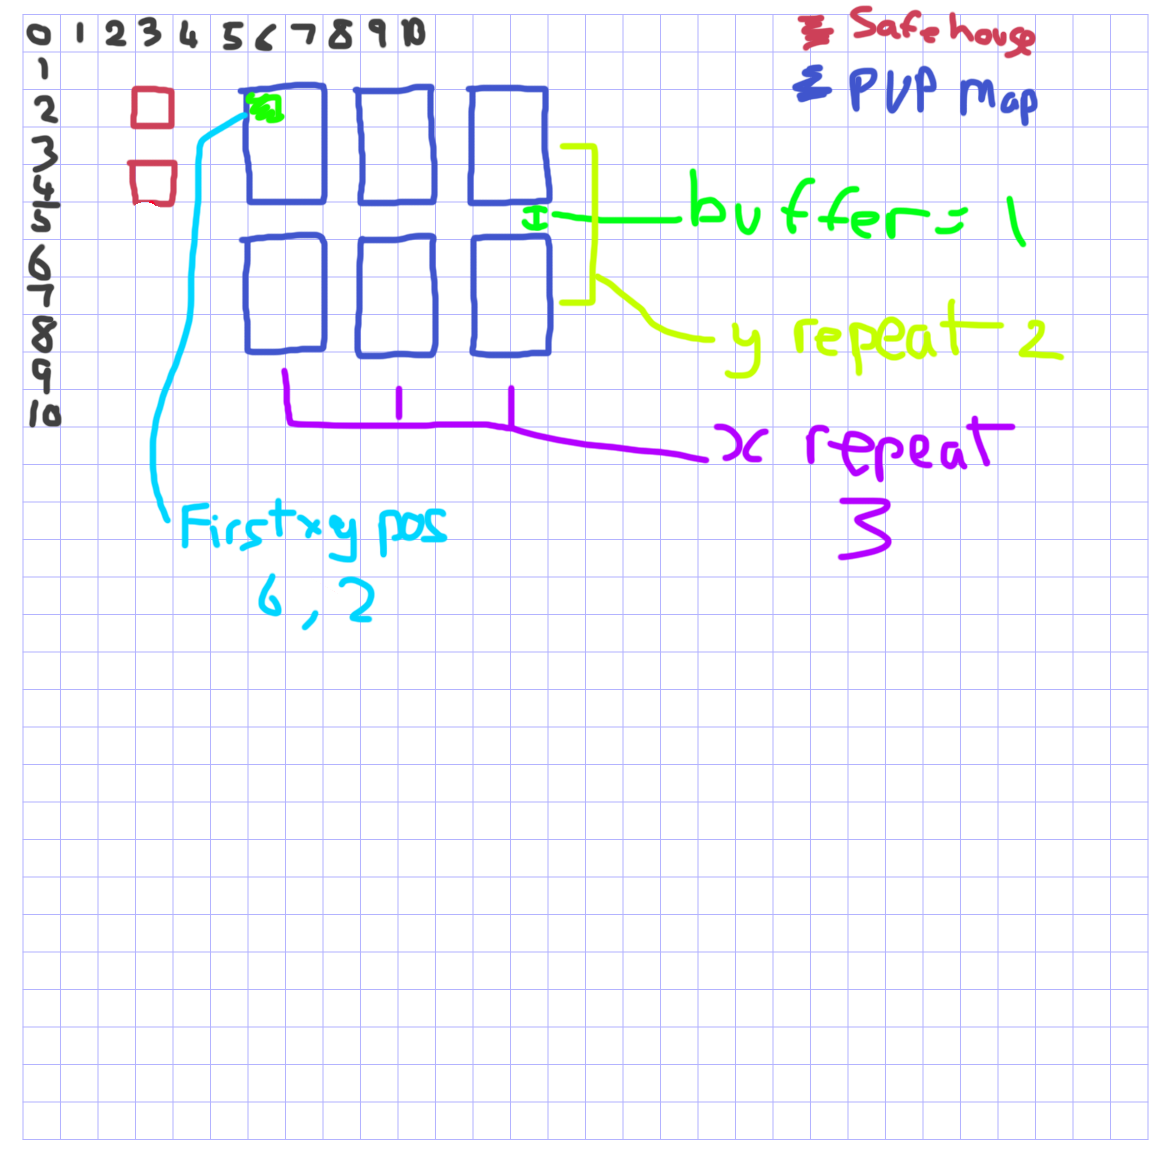 0 1 2 3 4 5 6 7 8 9 10
1
2
3
4
5
6
7
8
9
10
Safehouse
PVP map
buffer = 1
y repeat 2
x repeat
3
First xy pos
6, 2